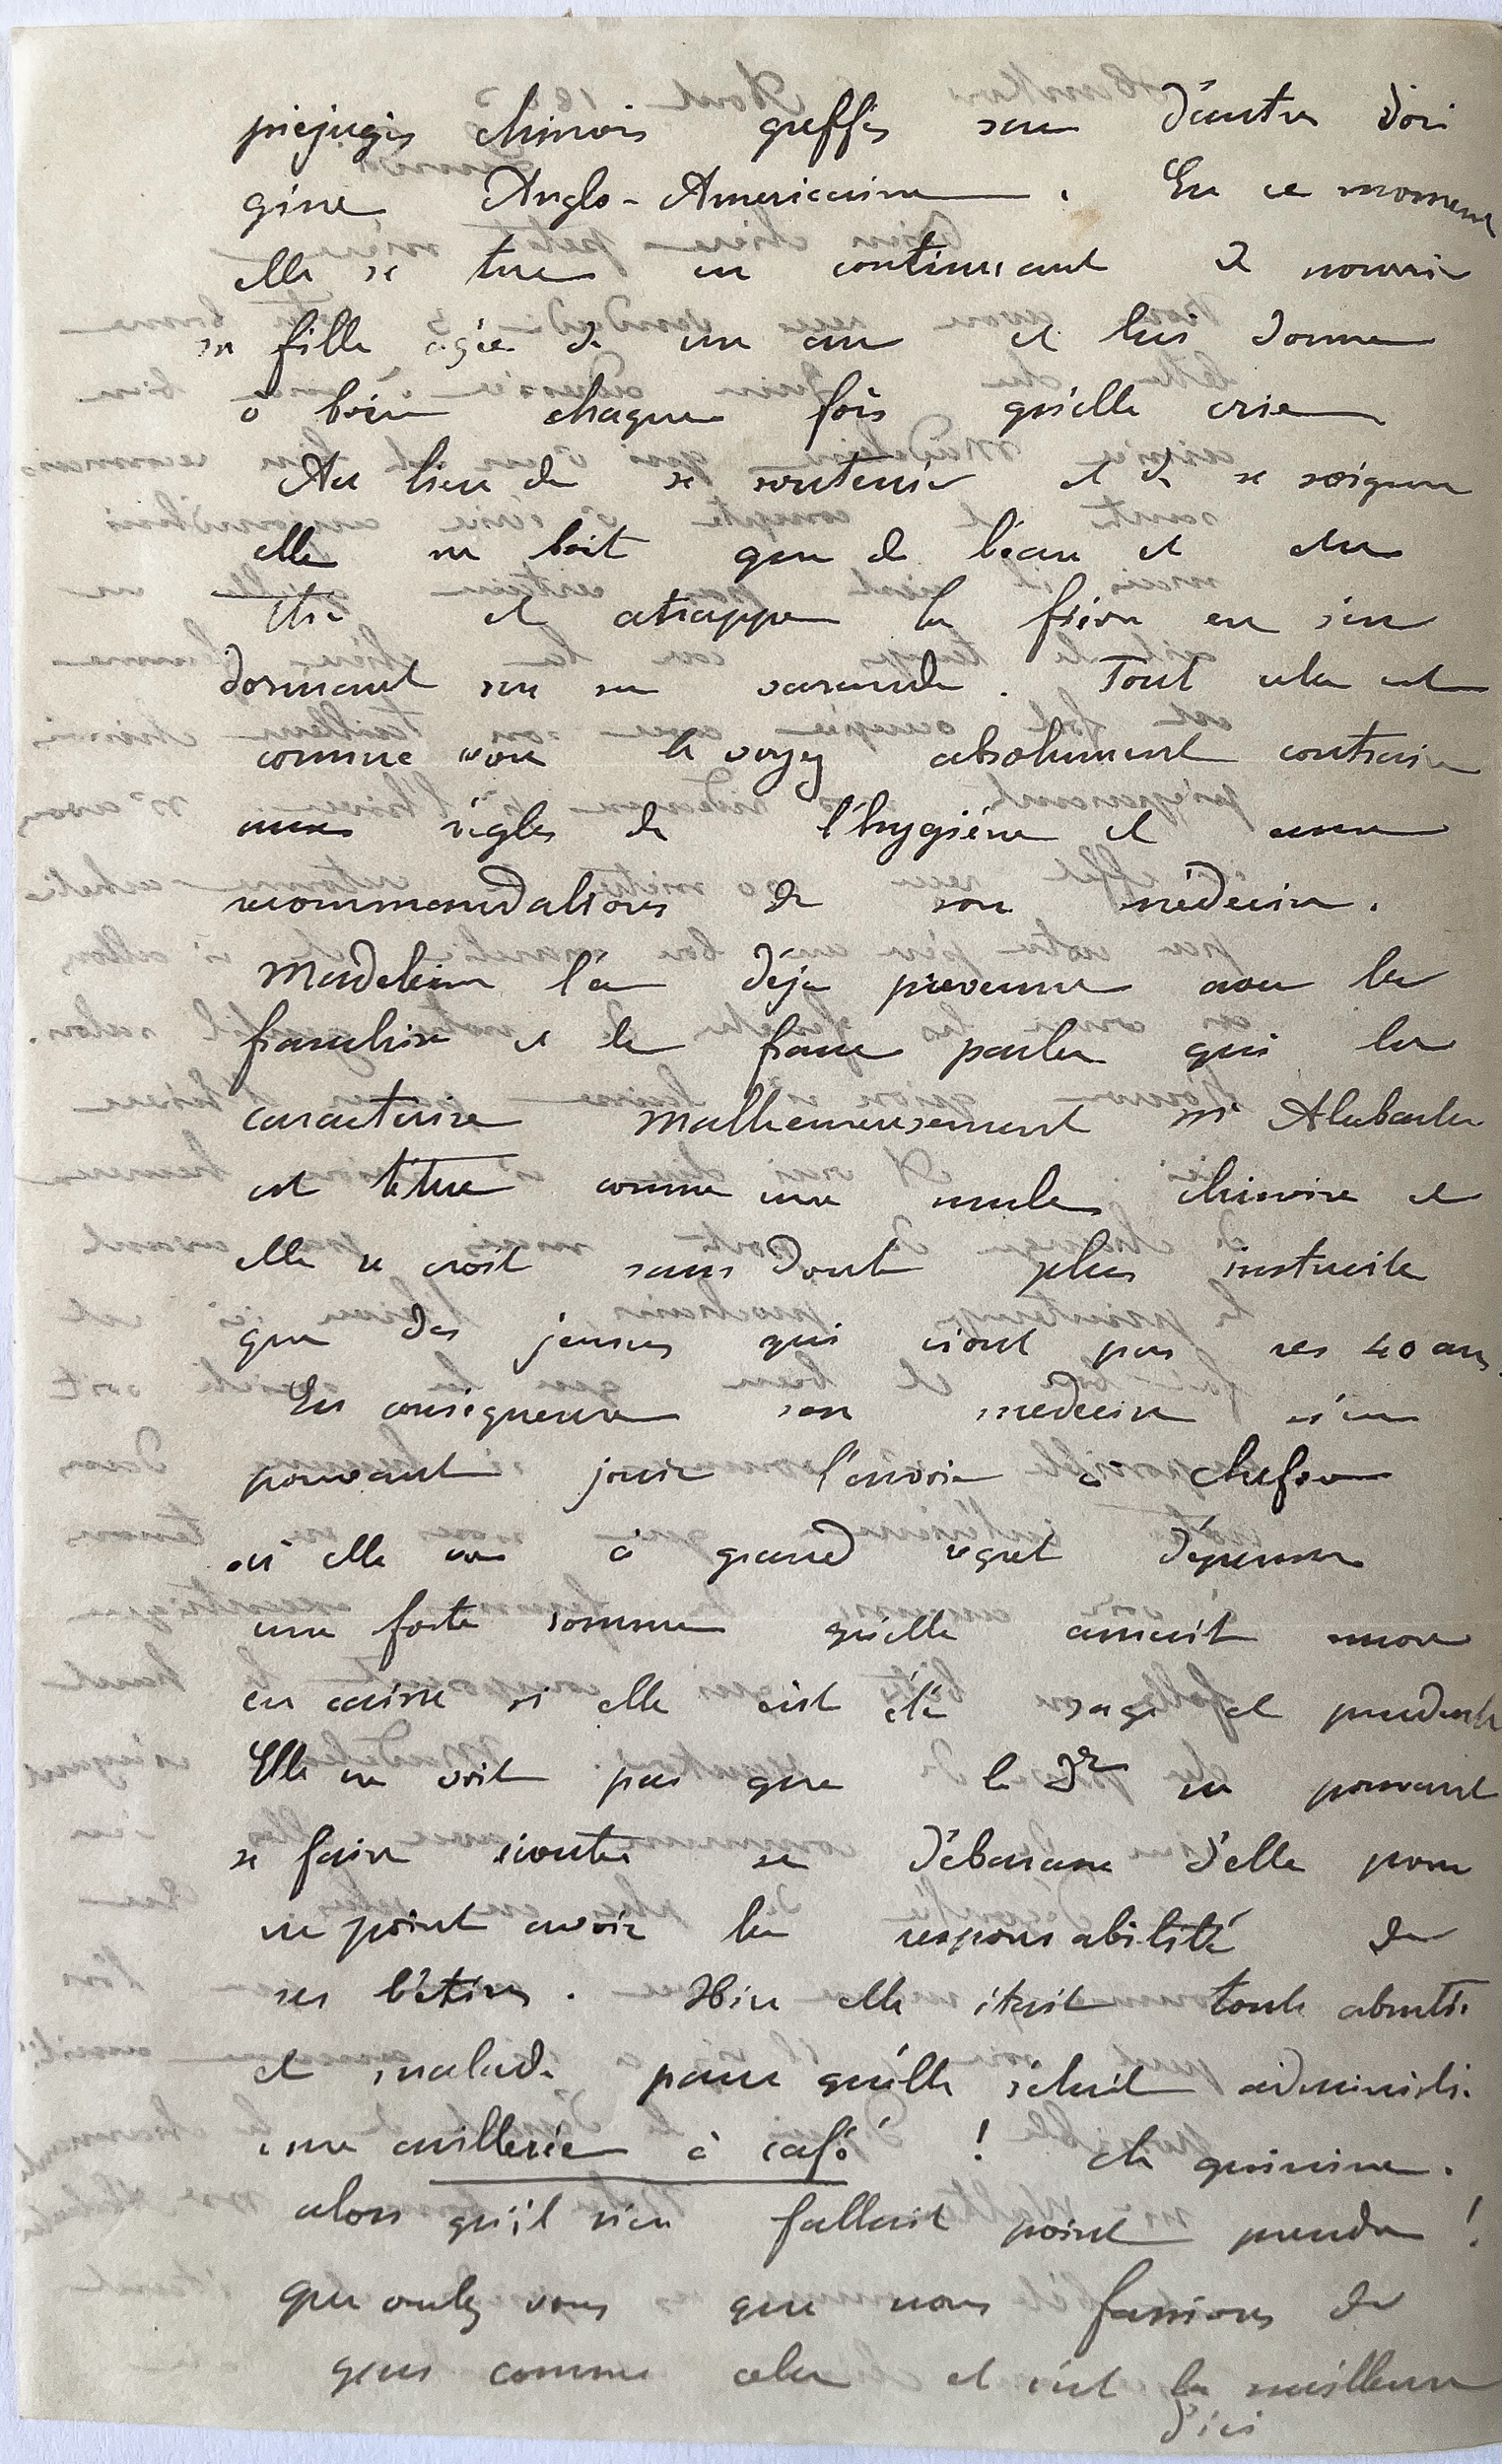 préjugés chinois greffés sur d'autres d'ori
gine Anglo-Américaine. En ce moment
elle se tue en continuant de nourrir
sa fille âgée de un an et lui donne
à boire chaque fois qu'elle crie
Au lieu de se soutenir et de se soigner
elle ne boit que de l'eau et du
thé et attrappe la fièvre en s'en
dormant sur sa varande. Tout cela est
comme vous le voyez absolument contraire
aux règles de l'hygiène et aux
recommandations de son médecin.
Madeleine l'a déjà prévenue avec la
franchise et le franc parler qui la
caractérise Malheureusement Me Alabaster
est têtue comme une mule chinoise et
elle se croit sans doute plus instruite
que des jeunes qui n'ont pas ses 40 ans.
En conséquence son médecin n'en
pouvant jouir l'envoie à Chefoo
où elle va à grand regret dépenser
une forte somme qu'elle aurait encore
en caisse si elle eût été sage et prudente
Elle ne voit pas que le Dr ne pouvant
se faire écouter se débarasse d'elle pour
ne point avoir la responsabilité de
ses bêtises. Hier elle était toute abrutie
et malade parce qu'elle s'était administré
une cuillerée à café ! de quinine.
alors qu'il n'en fallait point prendre !
que voulez vous que nous fassions de
gens comme cela et c'est la meilleure
d'ici